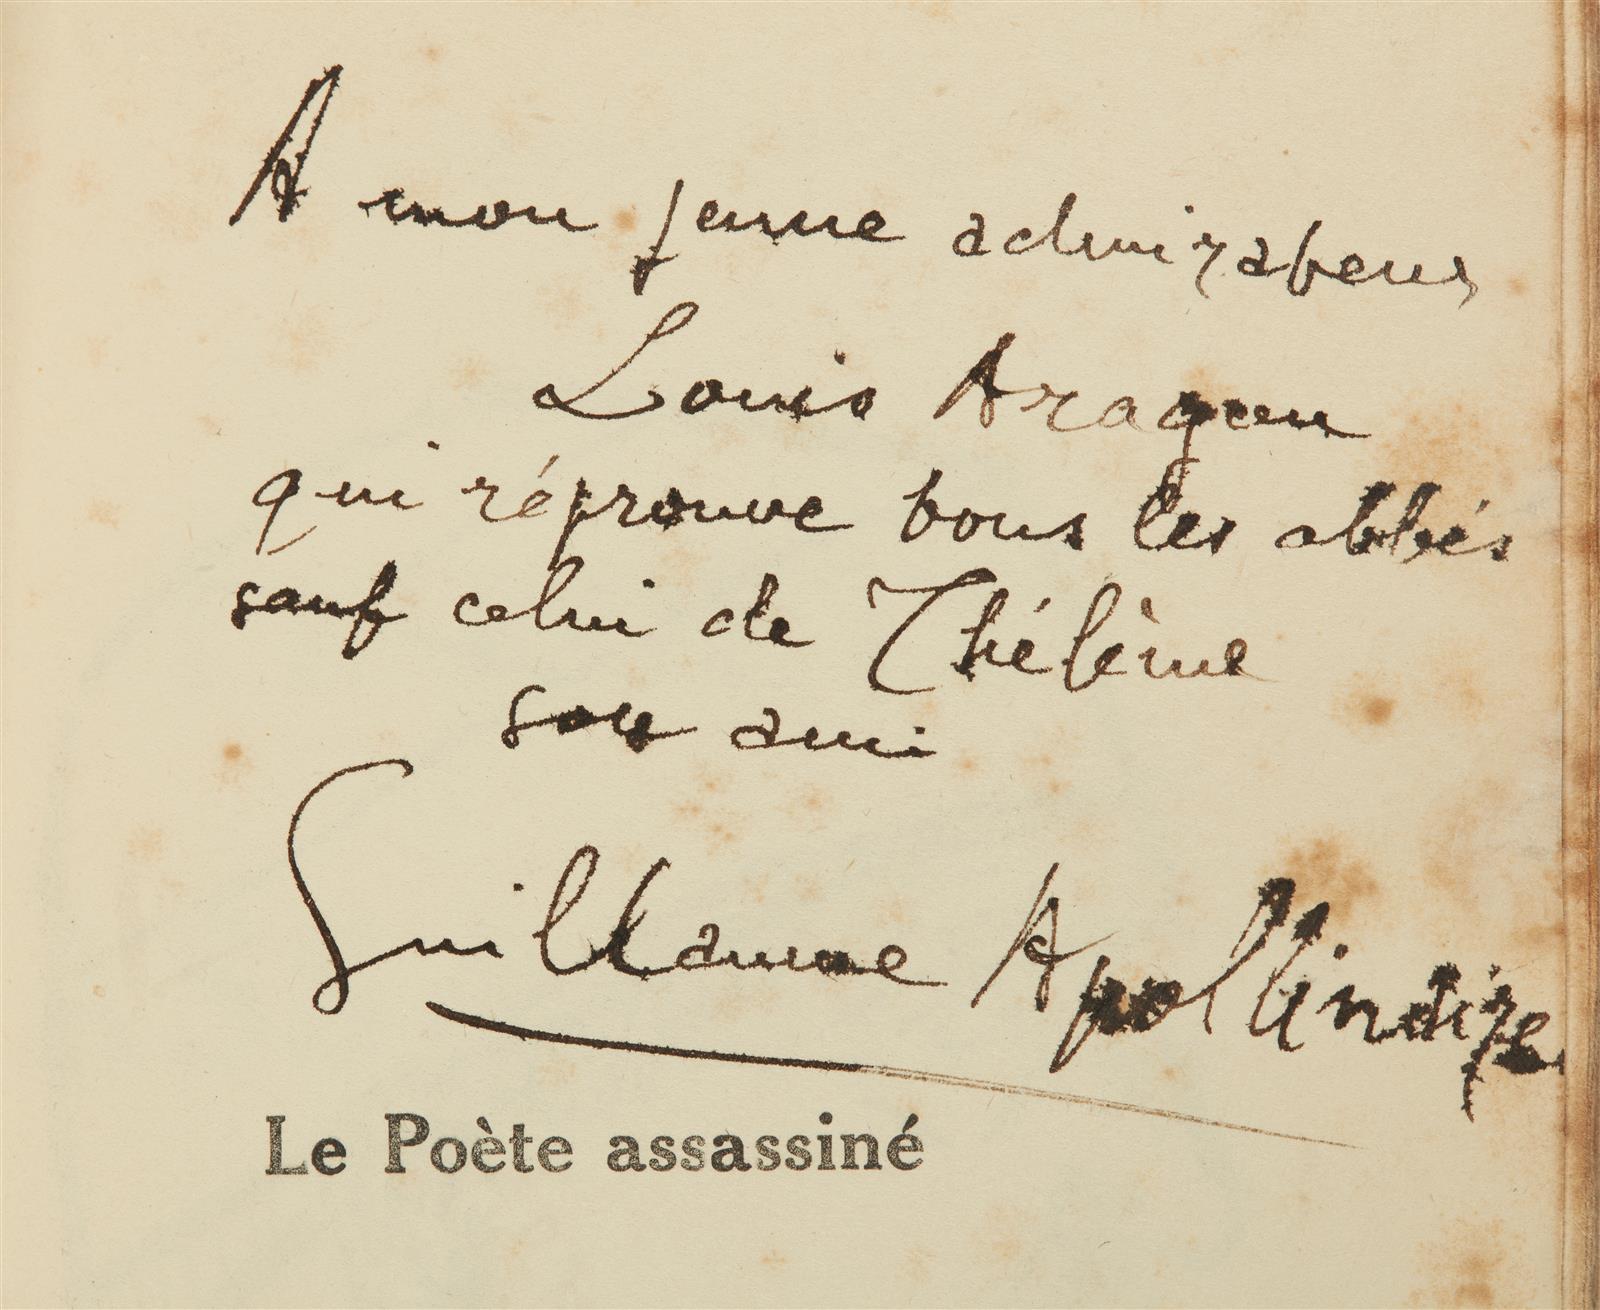 A mon jeune admirateur
Louis Aragon
qui réprouve tous les abbés
sauf celui de Thélème
son ami
Guillaume Apollinaire
Le Poète assassiné